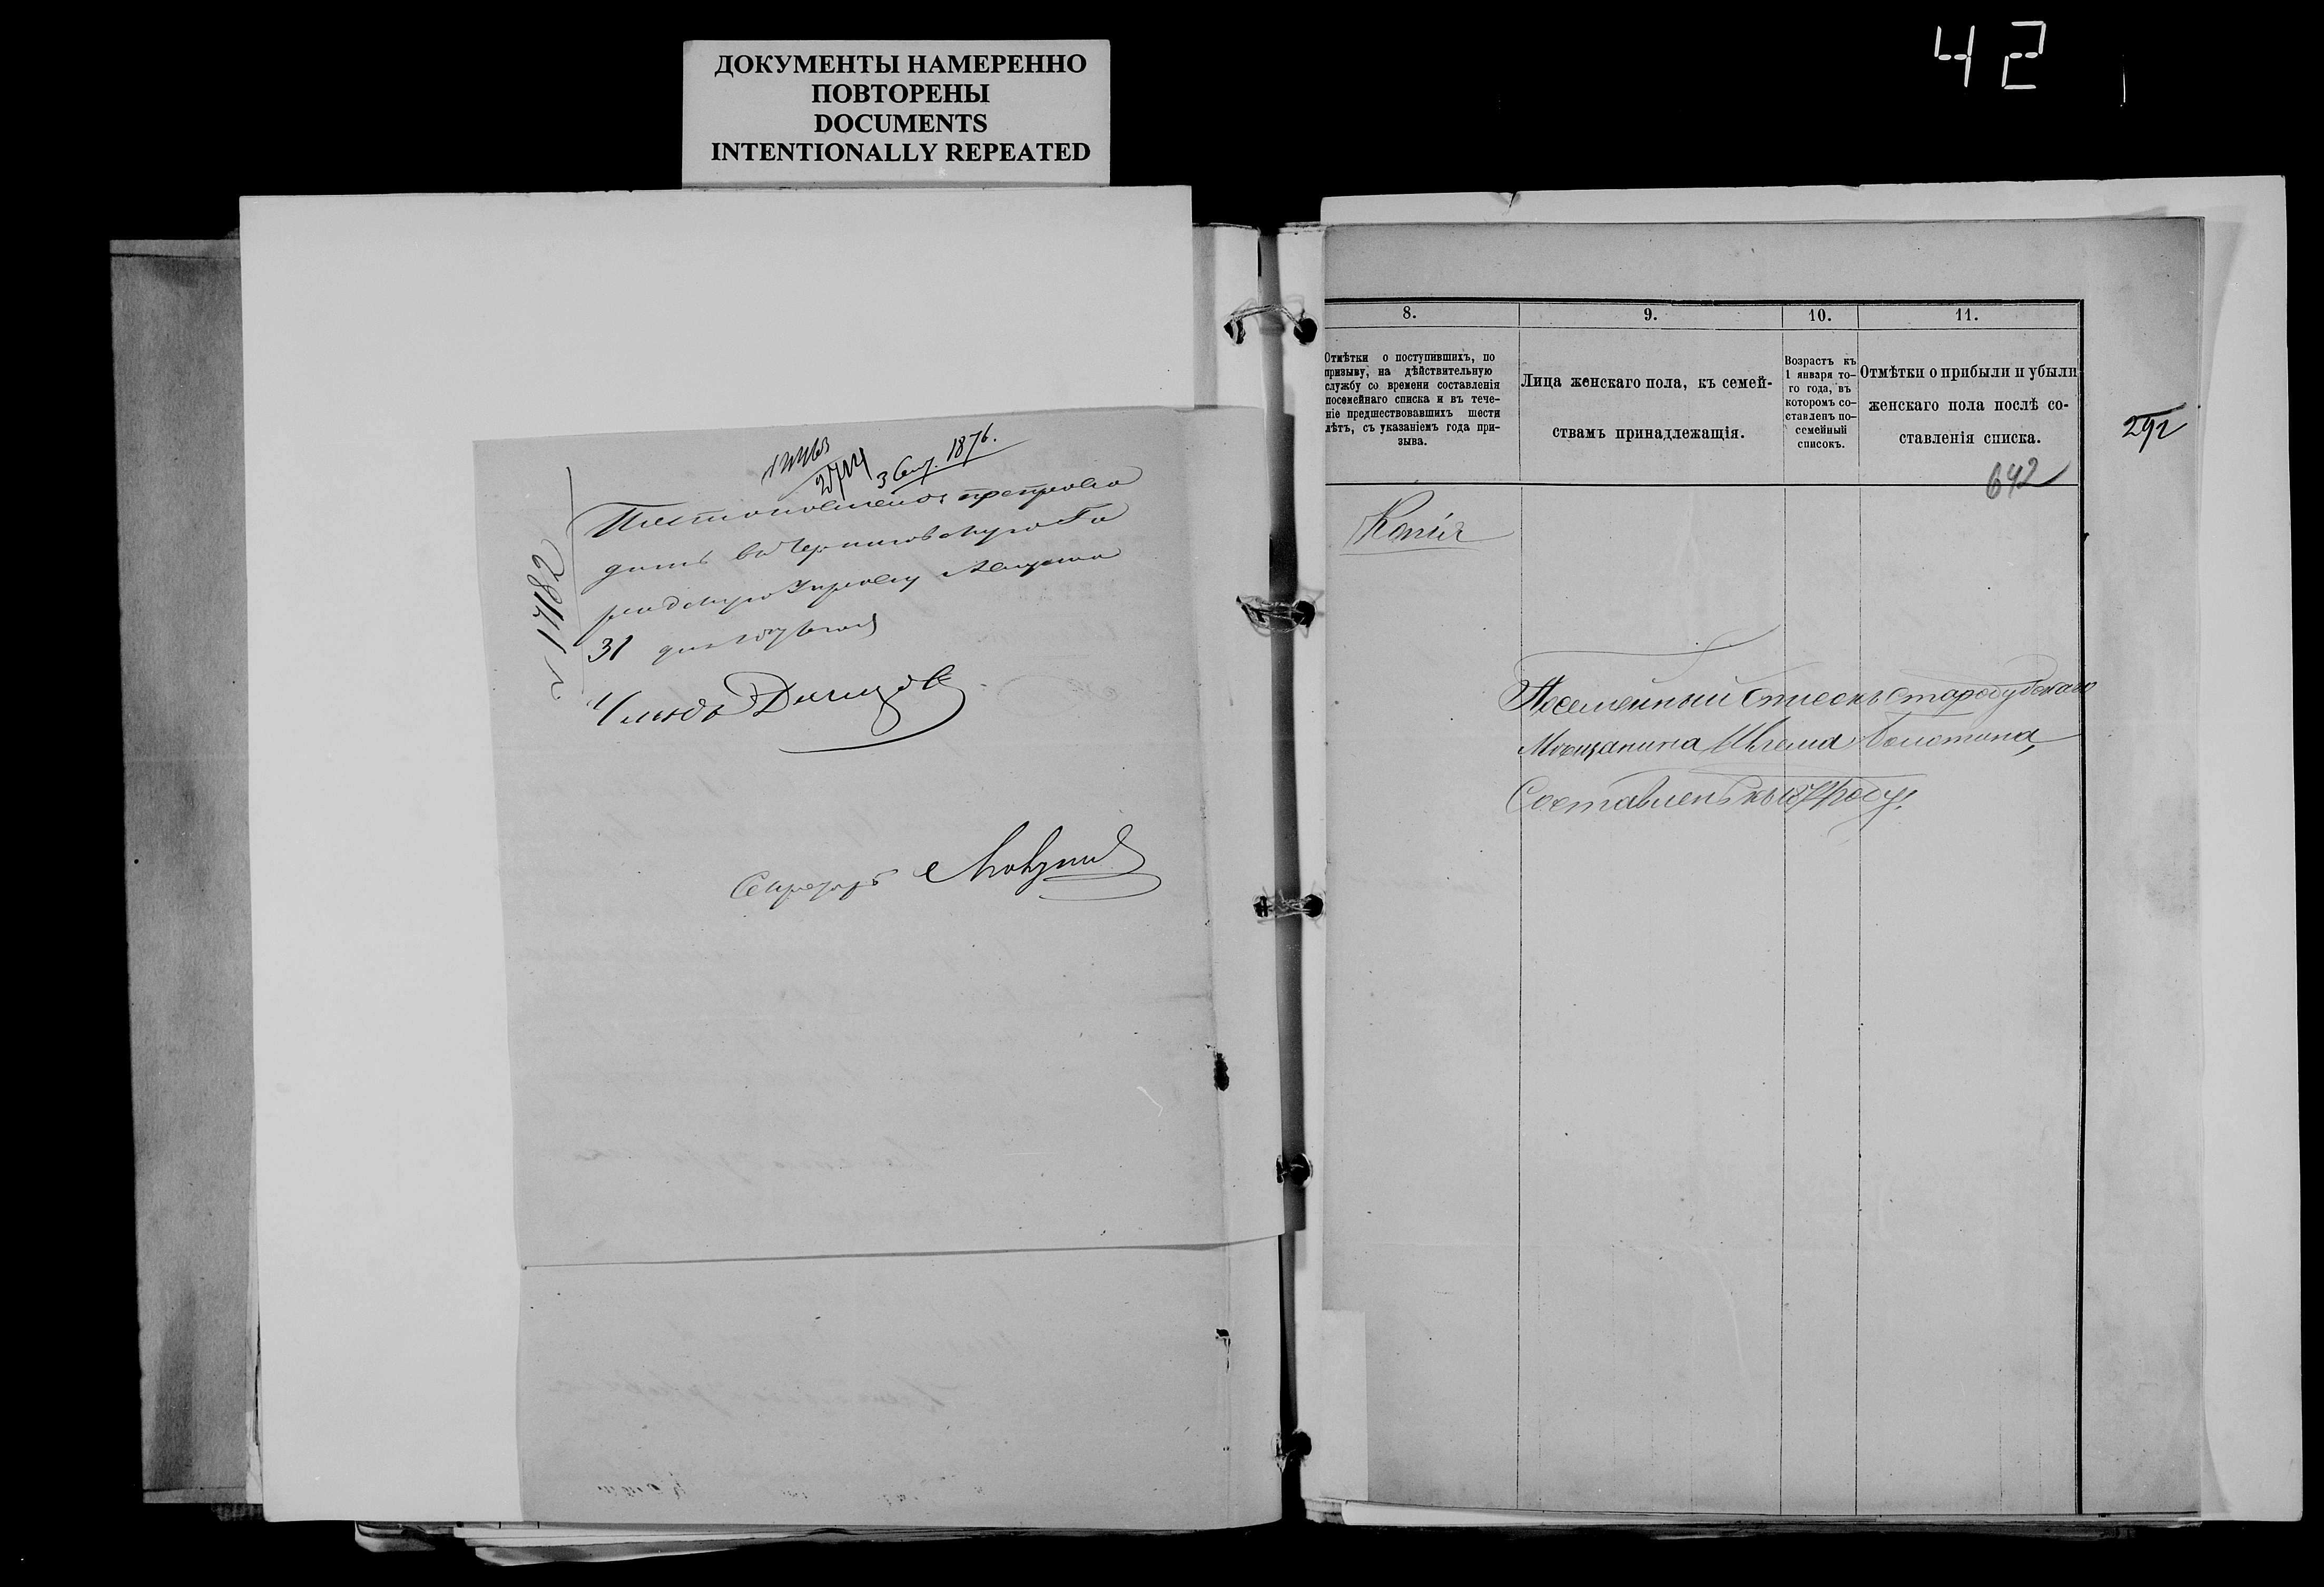 42
ДОКУМЕНТЫ НАМЕРЕННО
ПОВТОРЕНЫ
DOCUMENTS
INTENTIONALLY REPEATED
3 Сен. 1876.
препрово
дить въ Черниговскую Го
родскую Управу Августа
31 дня
№ 1782
Членъ
Секретарь
8.
Отмѣтки о поступившихъ, по
призыву, на дѣйствительную
службу со времени составленія
посемейнаго списка и въ тече-
ніе предшествовавшихъ шести
лѣтъ, съ указаніемъ года при-
зыва.
9.
Лица женскаго пола, къ семей-
ствамъ принадлежащія.
10.
Возрастъ къ
1 января то-
го года, въ
которомъ со-
ставленъ по-
семейный
списокъ.
11.
Отмѣтки о прибыли и убыли
женскаго пола послѣ со-
ставленія списка.
292
642
Копія
Посемейный списокъ Стародубскаго
Мѣщанина
Составленъ къ 1874 году.